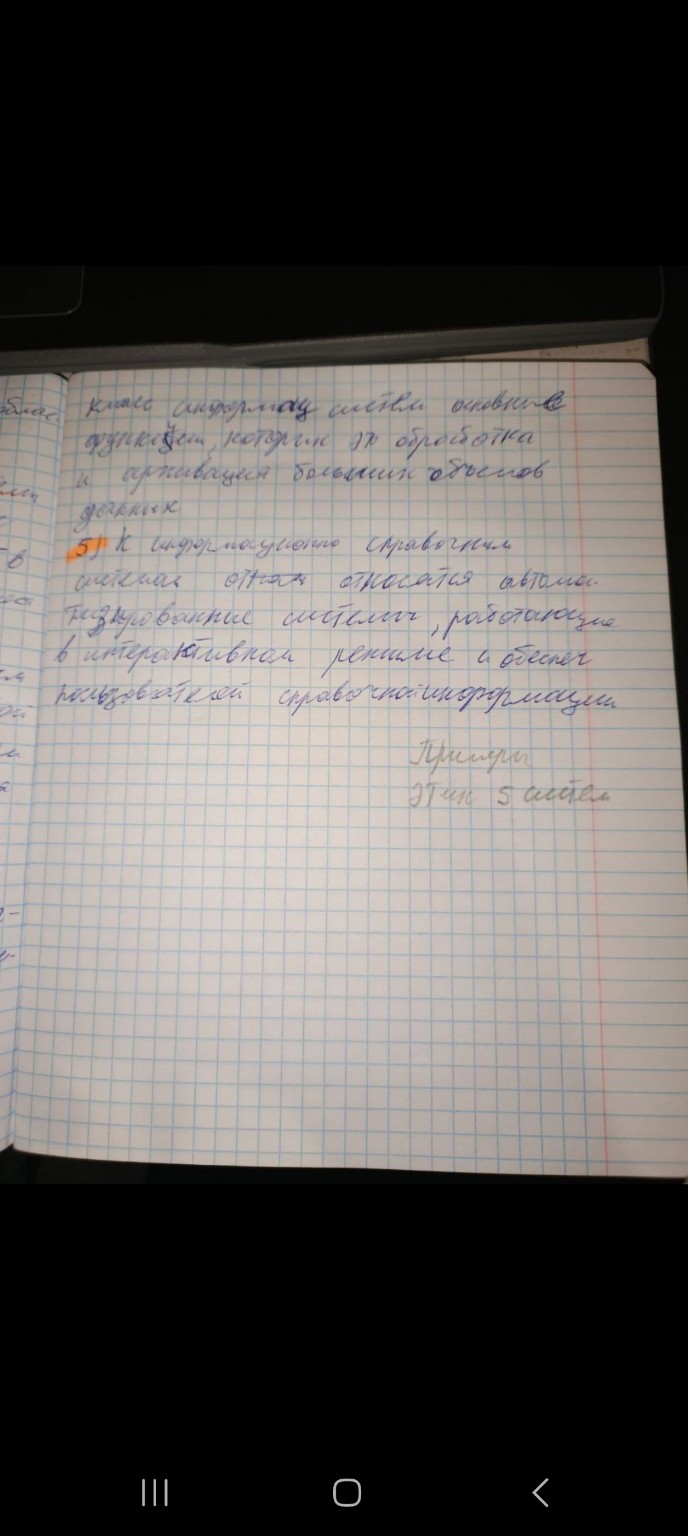 класс информац систем основные
функцией, которых эт обработка
и архивация больших объемов
данных
5) К информационно справочным
системам относятся автома-
тизированные системы, работающие
в интерактивном режиме и обеспеч
пользователей справочной информации
Примеры
этих 5 систем